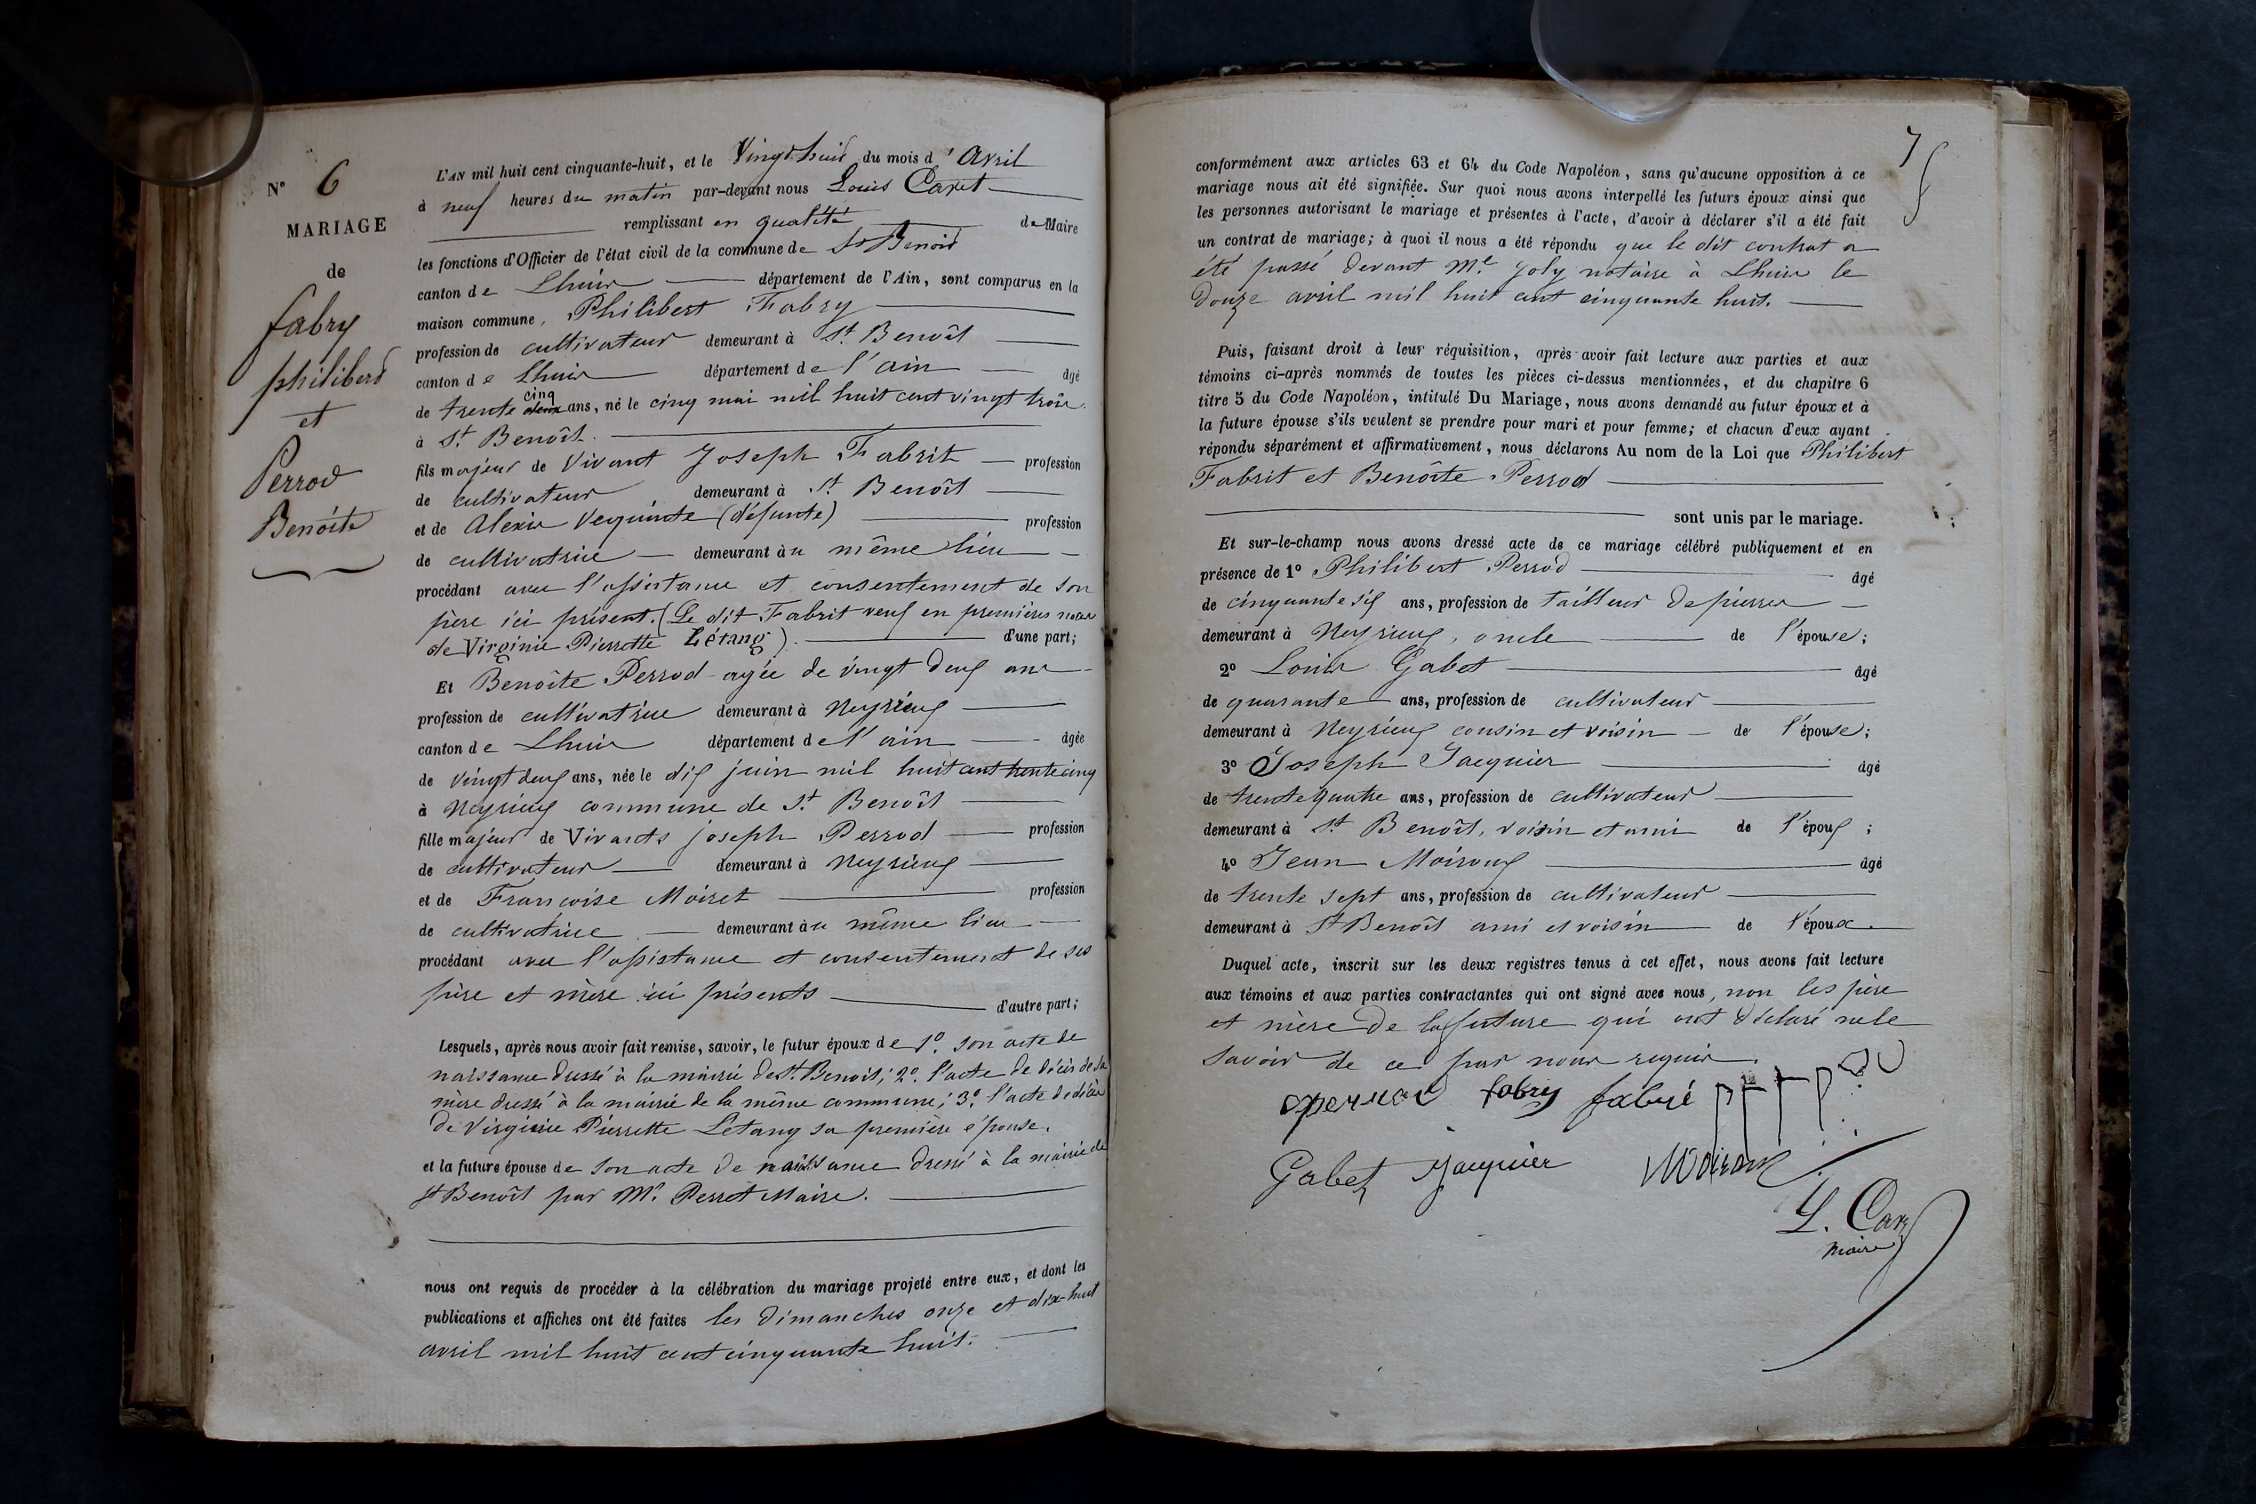 N° 6
MARIAGE
de
fabry
philibert
et
Perrod
Benoîte
L'AN mil huit cent cinquante-huit, et le Vingt huit du mois d'Avril
à neuf heures du matin par-devant nous Louis Caret
remplissant en qualité de Maire
les fonctions d'Officier de l'état civil de la commune de St Benoit
canton de Lhuis département de l'Ain, sont comparus en la
maison commune, Philibert Fabry
profession de cultivateur demeurant à St. Benoît
canton de Lhuis département de l'ain âgé
de trente cinq ans, né le cinq mai mil huit cent vingt trois
à St. Benoît.
fils majeur de Vivant Joseph Fabrit profession
de cultivateur demeurant à St. Benoît
et de Alexie Vequinte (défunte) profession
de cultivatrice demeurant au même lieu
procédant avec l'assistance et consentement de son
père ici présent. (Le dit Fabrit veuf en premières noces
de Virginie Pierrette Létang) d'une part;
Et Benoîte Perrod agée de vingt deux ans
profession de cultivatrice demeurant à Neyrieux
canton de Lhuis département de l'ain âgée
de vingt deux ans, née le dix juin mil huit cent trente cinq
à Neyrieux commune de St Benoît
fille majeur de Vivants joseph Perrod profession
de cultivateur demeurant à Neyrieux
et de Françoise Moiret profession
de cultivatrice demeurant au même lieu
procédant avec l'assistance et consentement de ses
père et mère ici présents d'autre part;
Lesquels, après nous avoir fait remise, savoir, le futur époux de 1°. son acte de
naissance dressé à la mairie de St. Benoit; 2°. l'acte de décès de sa
mère dressé à la mairie de la même commune; 3°. l'acte de décès
de Virginie Pierrette Létang sa première épouse.
et la future épouse de son acte de naissance dressé à la mairie de
St Benoît par Mr. Perret Maire.
nous ont requis de procéder à la célébration du mariage projeté entre eux, et dont les
publications et affiches ont été faites les dimanches onze et dix-huit
avril mil huit cent cinquante huit.
7
conformément aux articles 63 et 64 du Code Napoléon, sans qu'aucune opposition à ce
mariage nous ait été signifiée. Sur quoi nous avons interpellé les futurs époux ainsi que
les personnes autorisant le mariage et présentes à l'acte, d'avoir à déclarer s'il a été fait
un contrat de mariage; à quoi il nous a été répondu que le dit contrat a
été passé devant Me Joly notaire à Lhuis le
douze avril mil huit cent cinquante huit.
Puis, faisant droit à leur réquisition, après avoir fait lecture aux parties et aux
témoins ci-après nommés de toutes les pièces ci-dessus mentionnées, et du chapitre 6
titre 5 du Code Napoléon, intitulé Du Mariage, nous avons demandé au futur époux et à
la future épouse s'ils veulent se prendre pour mari et pour femme; et chacun d'eux ayant
répondu séparément et affirmativement, nous déclarons Au nom de la Loi que Philibert
Fabrit et Benoîte Perrod
sont unis par le mariage.
Et sur-le-champ nous avons dressé acte de ce mariage célébré publiquement et en
présence de 1° Philibert Perrod âgé
de cinquante six ans, profession de tailleur de pierres
demeurant à Neyrieux, oncle de l'épouse;
2° Louis Gabet âgé
de quarante ans, profession de cultivateur
demeurant à Neyrieux cousin et voisin de l'épouse;
3° Joseph Jacquier âgé
de trente quatre ans, profession de cultivateur
demeurant à St Benoît, voisin et ami de l'époux;
4° Jean Moiroux âgé
de trente sept ans, profession de cultivateur
demeurant à St Benoît ami et voisin de l'époux.
Duquel acte, inscrit sur les deux registres tenus à cet effet, nous avons fait lecture
aux témoins et aux parties contractantes qui ont signé avec nous, non les père
et mère de la future qui ont déclaré ne le
savoir de ce par nous requis.
perrod fabry fabri
Gabet Jacquier Moiroux
L. Caret
Maire